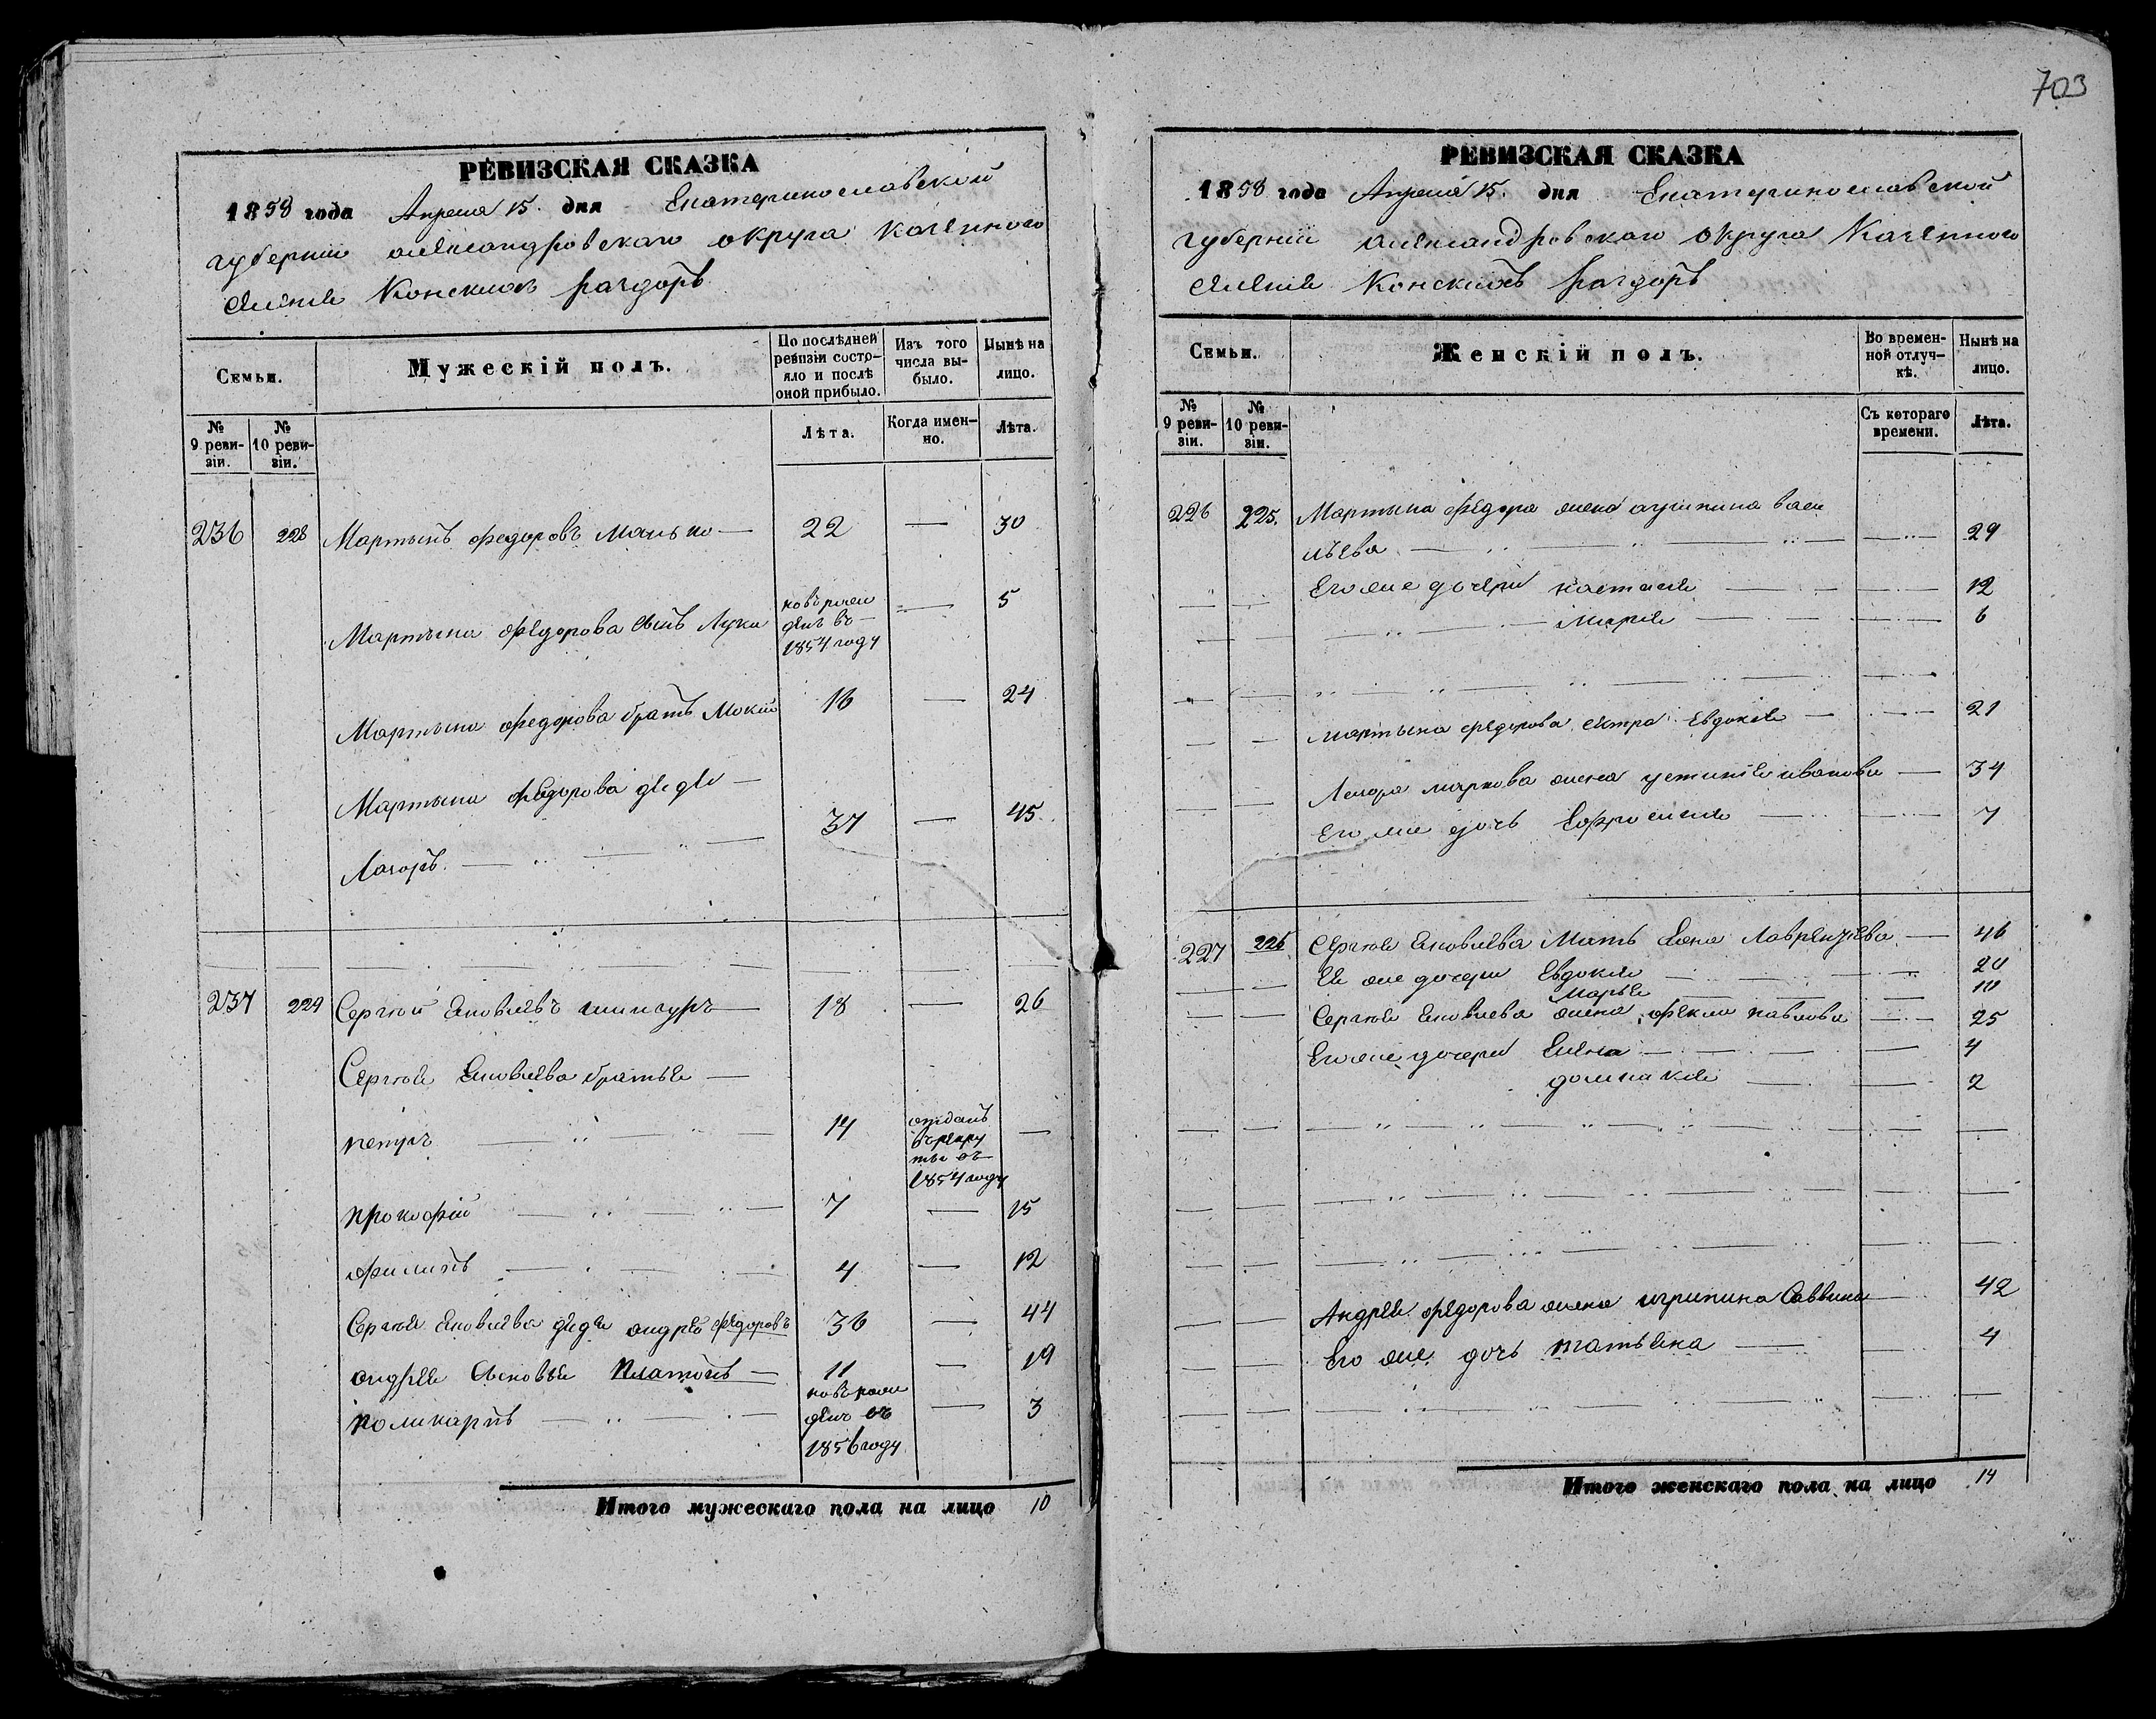 703
РЕВИЗСКАЯ СКАЗКА
1858 года Апреля 15. дня Екатеринославской
губернии александровскаго округа казенного
селенія Конскихъ раздоръ
Семьи.
Мужескій полъ.
По послѣдней ревизіи состо-
яло и послѣ
оной прибыло.
Изъ того
числа вы-
было.
Нынѣ на
лицо.
№
9 реви-
зіи.
№
10 реви-
зіи.
Лѣта.
Когда имен-
но.
Лѣта.
236 228 Мартынъ федоровъ Манько — 22 — 30
Мартына федорова сынъ Лука новорож
денъ въ
1854 году — 5
Мартына федорова братъ Мокій 16 — 24
Мартына федорова дядя —
Лазоръ. — 37 — 45.
237 229 Сергей Яковлевъ — 18 — 26
Сергея Яковлева братья —
петръ 14 отданъ
въ рекру
ты въ
1854 году —
прокофій 7 — 15
филипъ 4 — 12
Сергея Яковлева дядя андрей федоровъ 36 — 44
андрея сыновья Платонъ — 11 — 19
поликарпъ — новорож
денъ въ
1856 году — 3
Итого мужескаго пола на лицо 10
РЕВИЗСКАЯ СКАЗКА
1858 года Апреля 15. дня Екатеринославской
губерніи александровскаго округа Казенного
селенія Конскихъ раздоръ
Семьи.
Женскій полъ.
Во времен-
ной отлуч-
кѣ.
Нынѣ на
лицо.
№
9 реви-
зіи.
№
10 реви-
зіи.
Съ котораго
времени.
Лѣта.
226 225. Мартына федора жена агрипина васи
льева — 29
Его же дочери настасія 12
Марія 6
Мартына федорова сестра Евдокія — 21
Лазора маркова жена устинія иванова — 34
Его же дочь Ефросинія 7
227 226 Сергея Яковлева Мать Елена Лаврентіева — 46
Ея же дочери Евдокия 20
Марья 10
Сергея Яковлева жена фекла павлова 25
Его же дочери Елена 4
домникия 2
Андрея федорова жена агрипина Саввина 42
Его же дочь татьяна 4
Итого женскаго пола на лицо 14